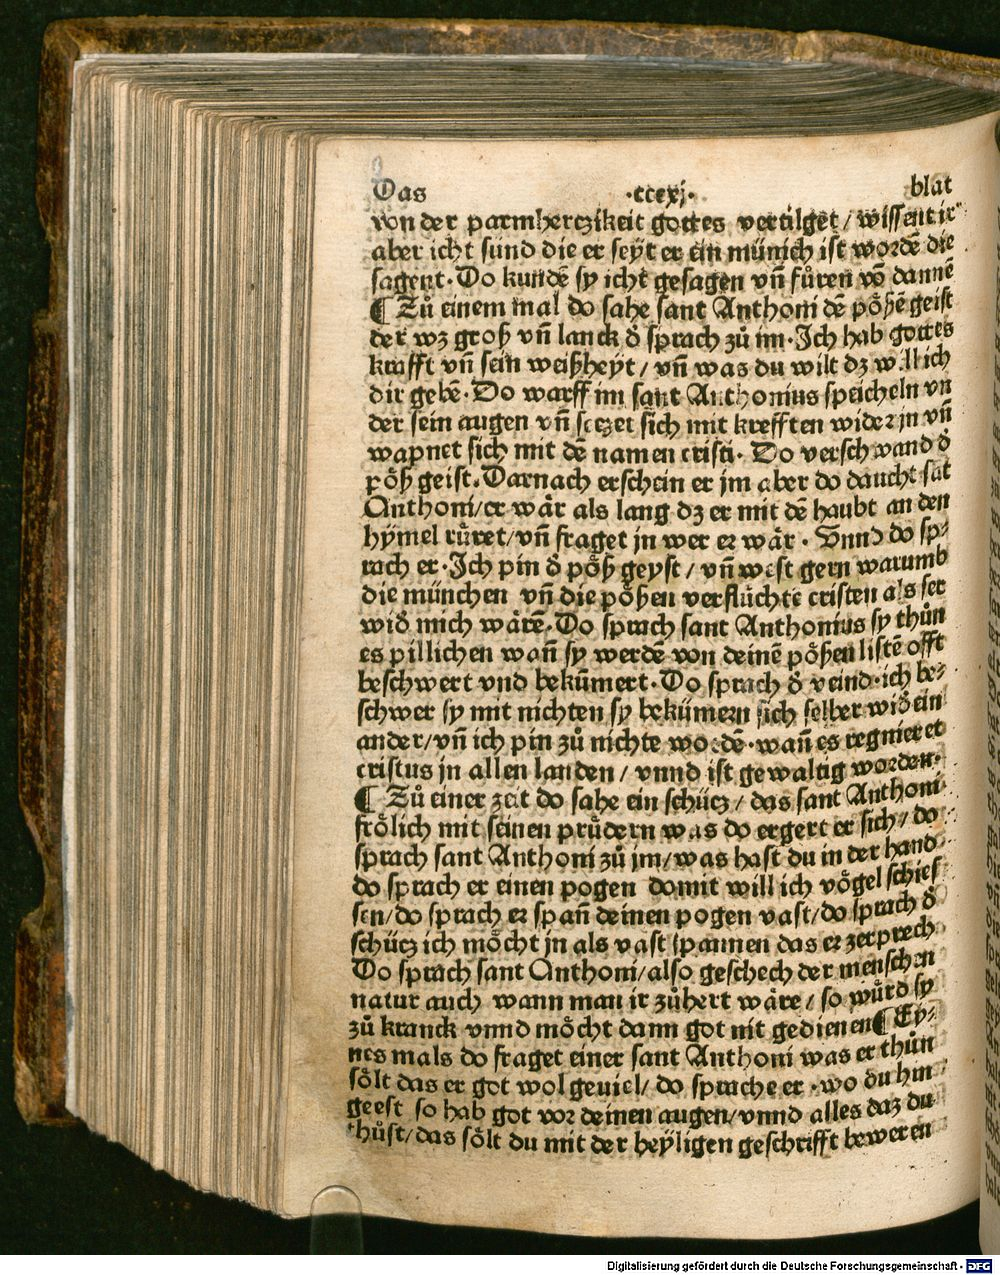 Das ·cccxj· blat
von der parmhertzikeit gottes vertilget / wissent ir
aber icht sünd die er seyt er ein münich ist wordē die
sagent. Do kundē sy icht gesagen vñ fůren vō dannē
¶ Zů einem mal do sahe sant Anthoni dē pôßē geist
der wz groß vñ lanck ð sprach zů im. Ich hab gottes
krafft vñ sein weißheyt / vñ was du wilt dz will ich
dir gebē. Do warff im sant Anthonius speicheln vn
der sein augen vñ seczet sich mit krefften wider jn vñ
wapnet sich mit dē namen cristi. Do verschwand ð
pôß geist. Darnach erschein er jm aber do daucht sāt
Anthoni / er wår als lang dz er mit dē haubt an den
hymel růret / vñ fraget jn wer er wår. Vnnd do sp-
rach er. Ich pin ð pôß geyst / vñ west gern warumb
die münchen vñ die pôßen verflůchtē cristen als ser
wið mich wårē. Do sprach sant Anthonius sy thůn
es pillichen wañ sy werdē von deinē pôßen listē offt
beschwert vnd bekūmert. Do sprach ð veind. ich be-
schwer sy mit nichten sy bekümern sich selber wið ein
ander / vñ ich pin zů nichte wordē. wañ es regnieret
cristus jn allen landen / vnnd ist gewaltig worden.
¶ Zů einer zeit do sahe ein schücz / das sant Anthoni
frôlich mit seinen průdern was do ergert er sich / do
sprach sant Anthoni zů jm / was hast du in der hand
do sprach er einen pogen domit will ich vôgel schies
sen / do sprach er spañ deinen pogen vast / do sprach ð
schücz ich môcht jn als vast spannen das er zerprech
Do sprach sant Anthoni / also geschech der menschen
natur auch wann man ir zůhert wåre / so wůrd sy
zů kranck vnnd môcht dann got nit gedienen ¶ Ey-
nes mals do fraget einer sant Anthoni was er thůn
sôlt das er got wol geuiel / do sprache er. wo du hin
geest so hab got vor deinen augen / vnnd alles daz du
thůst / das sôlt du mit der heyligen geschrifft beweren
Digitalisierung gefördert durch die Deutsche Forschungsgemeinschaft - DFG